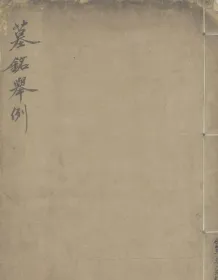 墓銘舉例